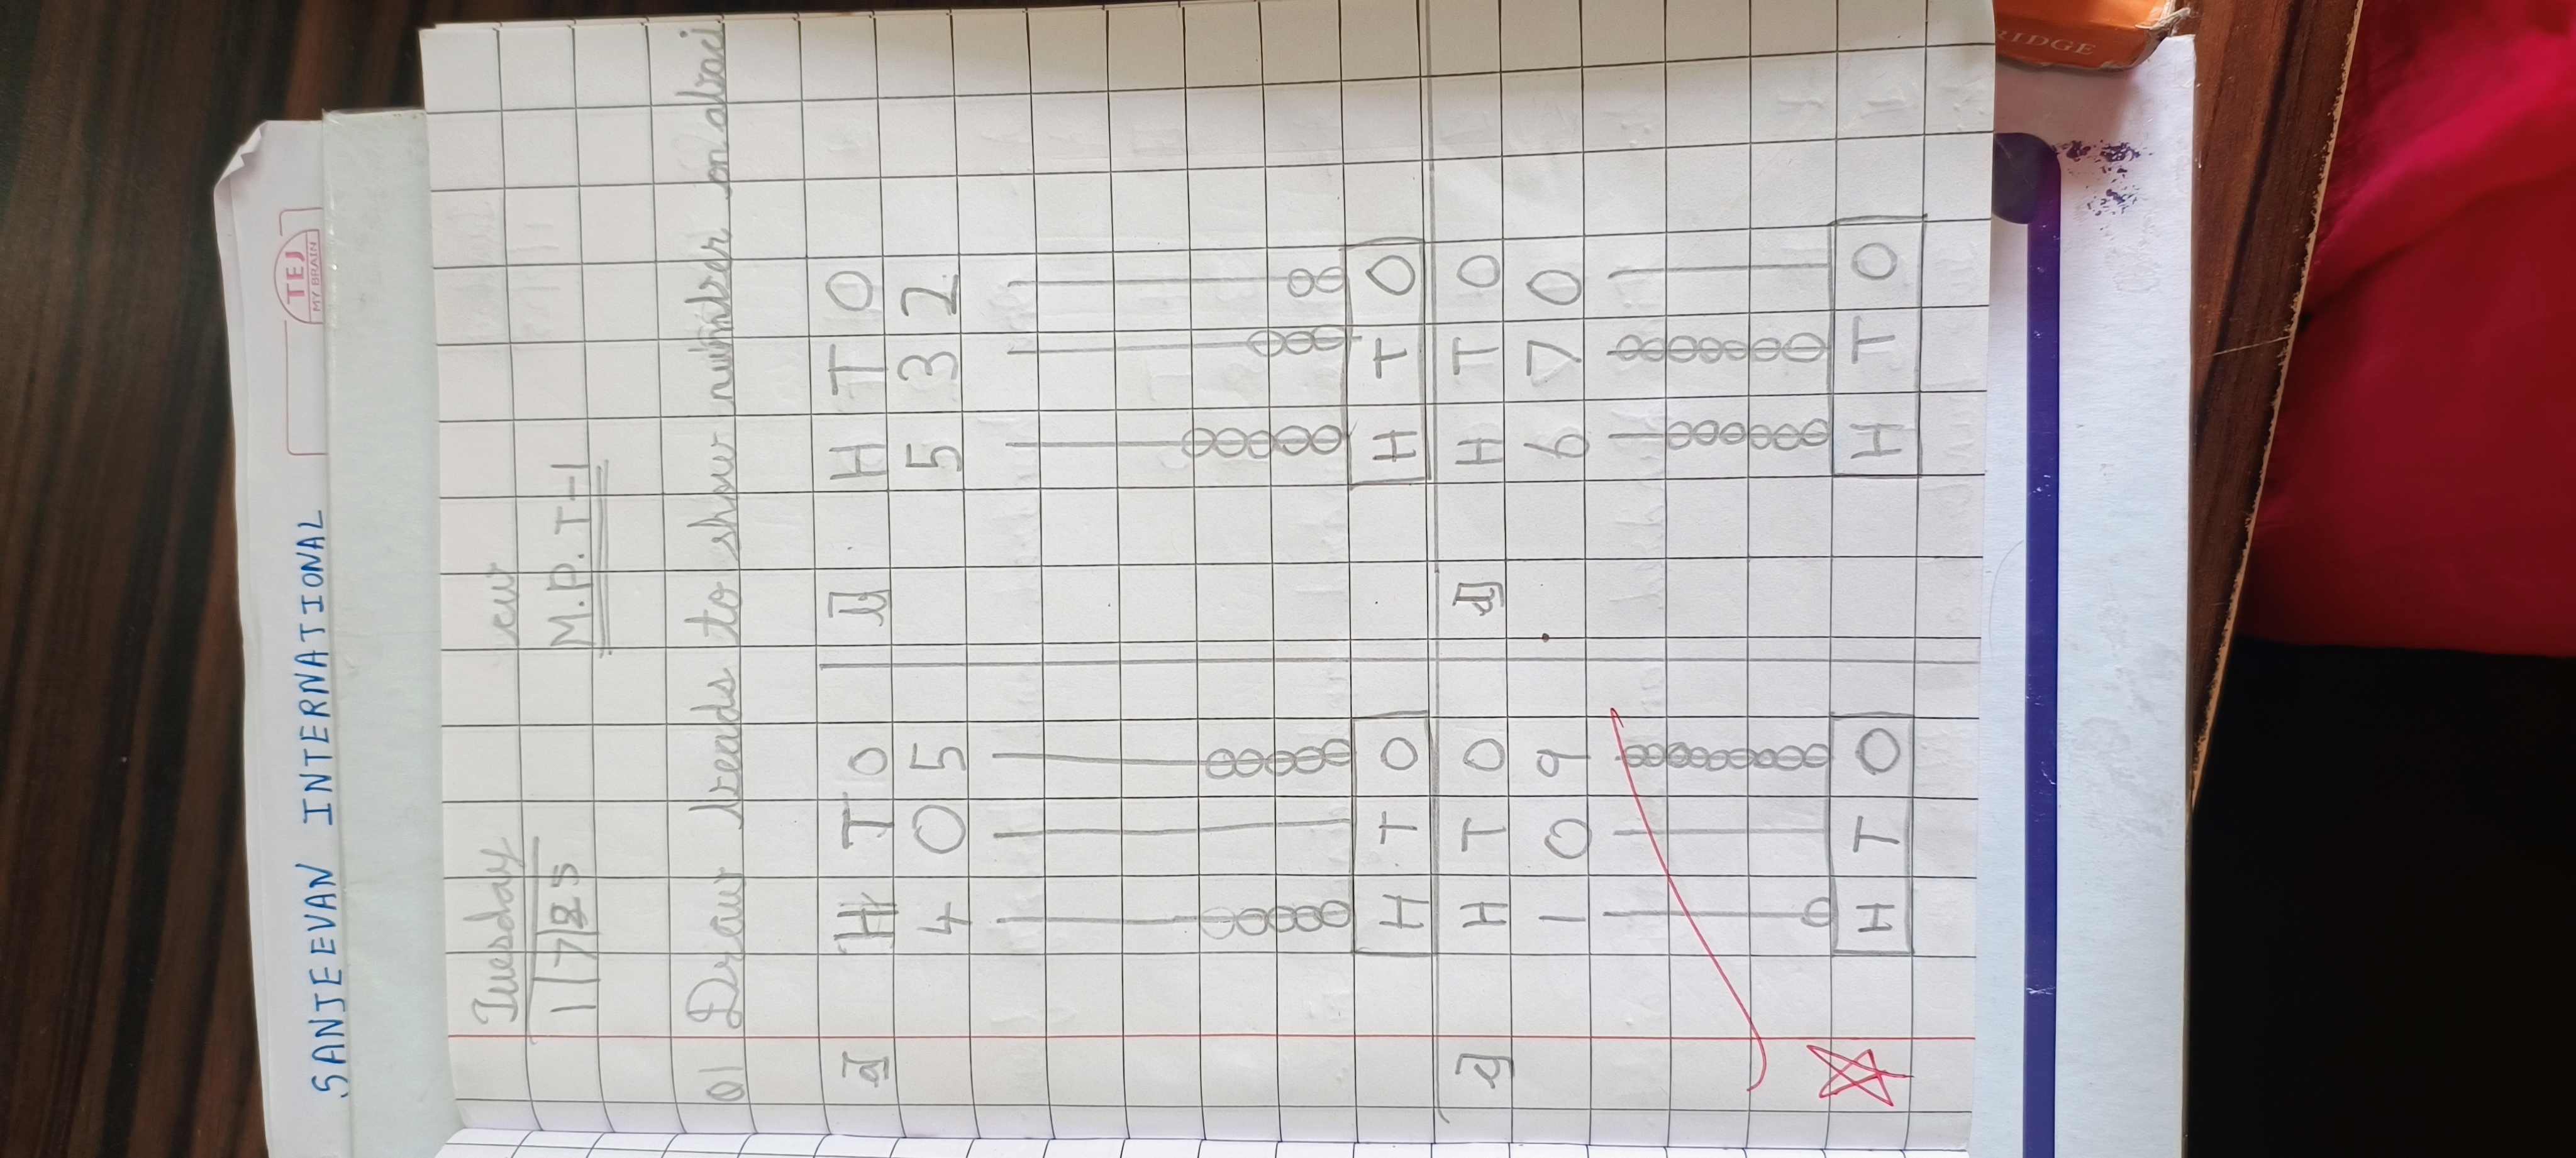 SANJEEVAN INTERNATIONAL
TEJ
MY BRAIN
RIDGE
Tuesday cw
1/7/25 M.P.T-1
Q1 Draw beads to show number on abaci
a] H T O b] H T O
4 0 5 5 3 2
H T O H T O
c] H T O d] H T O
1 0 9 6 7 0
H T O H T O